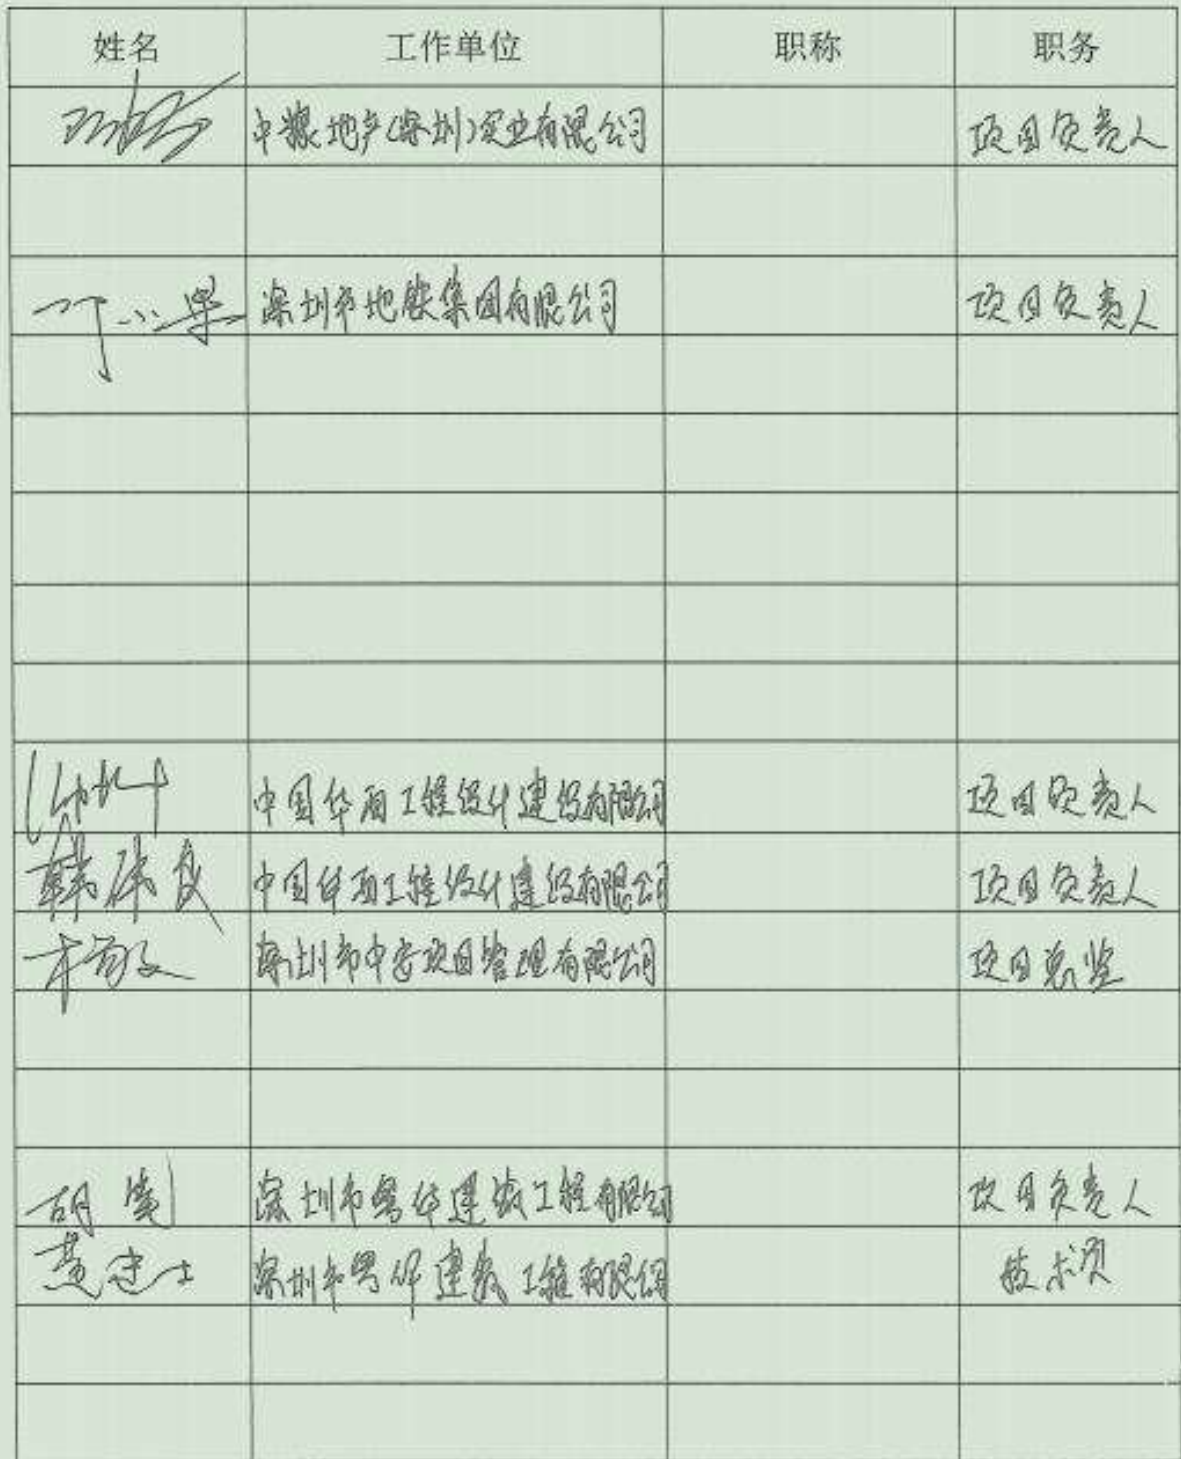 姓名 工作单位 职称 职务
中粮地产(深圳)实业有限公司 项目负责人
深圳市地铁集团有限公司 项目负责人
中国华西工程设计建设有限公司 项目负责人
韩伟良 中国华西工程设计建设有限公司 项目负责人
深圳市中安项目管理有限公司 项目总监
胡 深圳市粤华建设工程有限公司 项目负责人
黄忠士 深圳市粤华建设工程有限公司 技术员